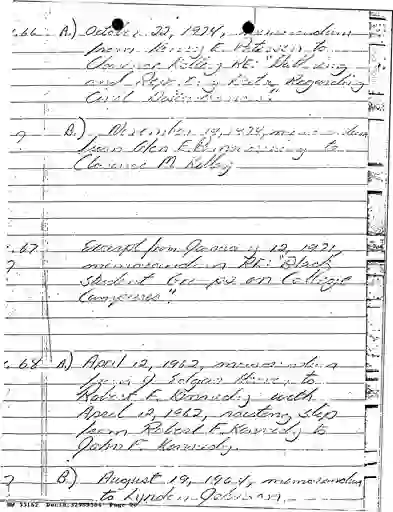 66 A.) October 22, 1974, memorandum
from Henry E. Petersen to
Clarence Kelley RE:
and Regarding
B.) November 19, 1974, memorandum
from Glen E. Pommerening to
Clarence M. Kelley
67 Excerpt from January 12, 1971,
memorandum RE: "Black
Student Groups on College
Campuses".
68 A.) April 12, 1962, memorandum
from J. Edgar Hoover to
Robert F. Kennedy with
April 12, 1962, routing slip
from Robert F. Kennedy to
John F. Kennedy.
B.) August 19, 1964, memorandum
to Lyndon Johnson.
Page